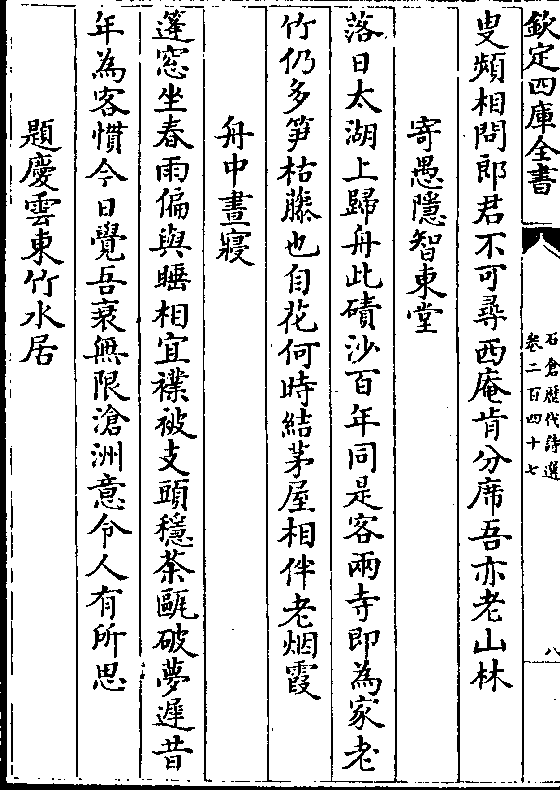 欽定四庫全書
石倉歴代詩選
卷二百四十七
八
叟頻相問郎君不可尋西庵肯分席吾亦老山林
寄愚隱智東堂
落日太湖上歸舟此磧沙百年同是客兩寺即為家老
竹仍多笋枯藤也自花何時結茅屋相伴老烟霞
舟中晝寢
篷窓坐春雨偏與睡相宜襆被支頭穩茶甌破夢遲昔
年為客慣今日覺吾衰無限滄洲意令人有所思
題慶雲東竹水居